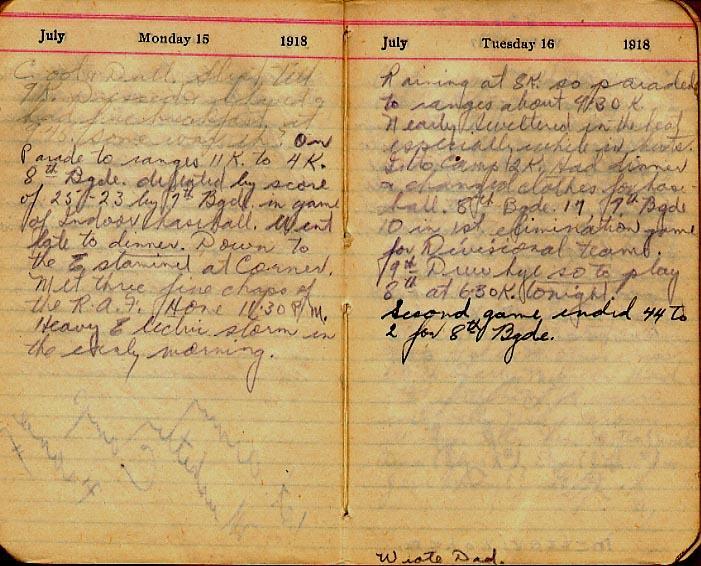 July Monday 15 1918
Cool & Dull. Slept till
9K.
had fine breakfast at
9.45. some
On
Parade to ranges 11K. to 4K.
8th Bgde. defeated by score
of 25-23 by 9th Bgde. in game
of Indoor Baseball. Went
late to dinner. Down to
the Estaminet at Corner.
Met three fine chaps of
the R.A.F. Home 11.30 P.M.
Heavy Electric storm in
the early morning.
July Tuesday 16 1918
Raining at 8K. so paraded
to ranges about 9.30 K.
Nearly sweltered in the heat
especially while in
Camp 2K. Had dinner
& changed clothes for base-
ball. 8th Bgde. 17 9th Bgde
10 in 1st. elimination game
for Divisional Team.
9th Drew bye so to play
8th at 6.30K. tonight.
Second game ended 44 to
2 for 8th Bgde.
Wrote Dad.